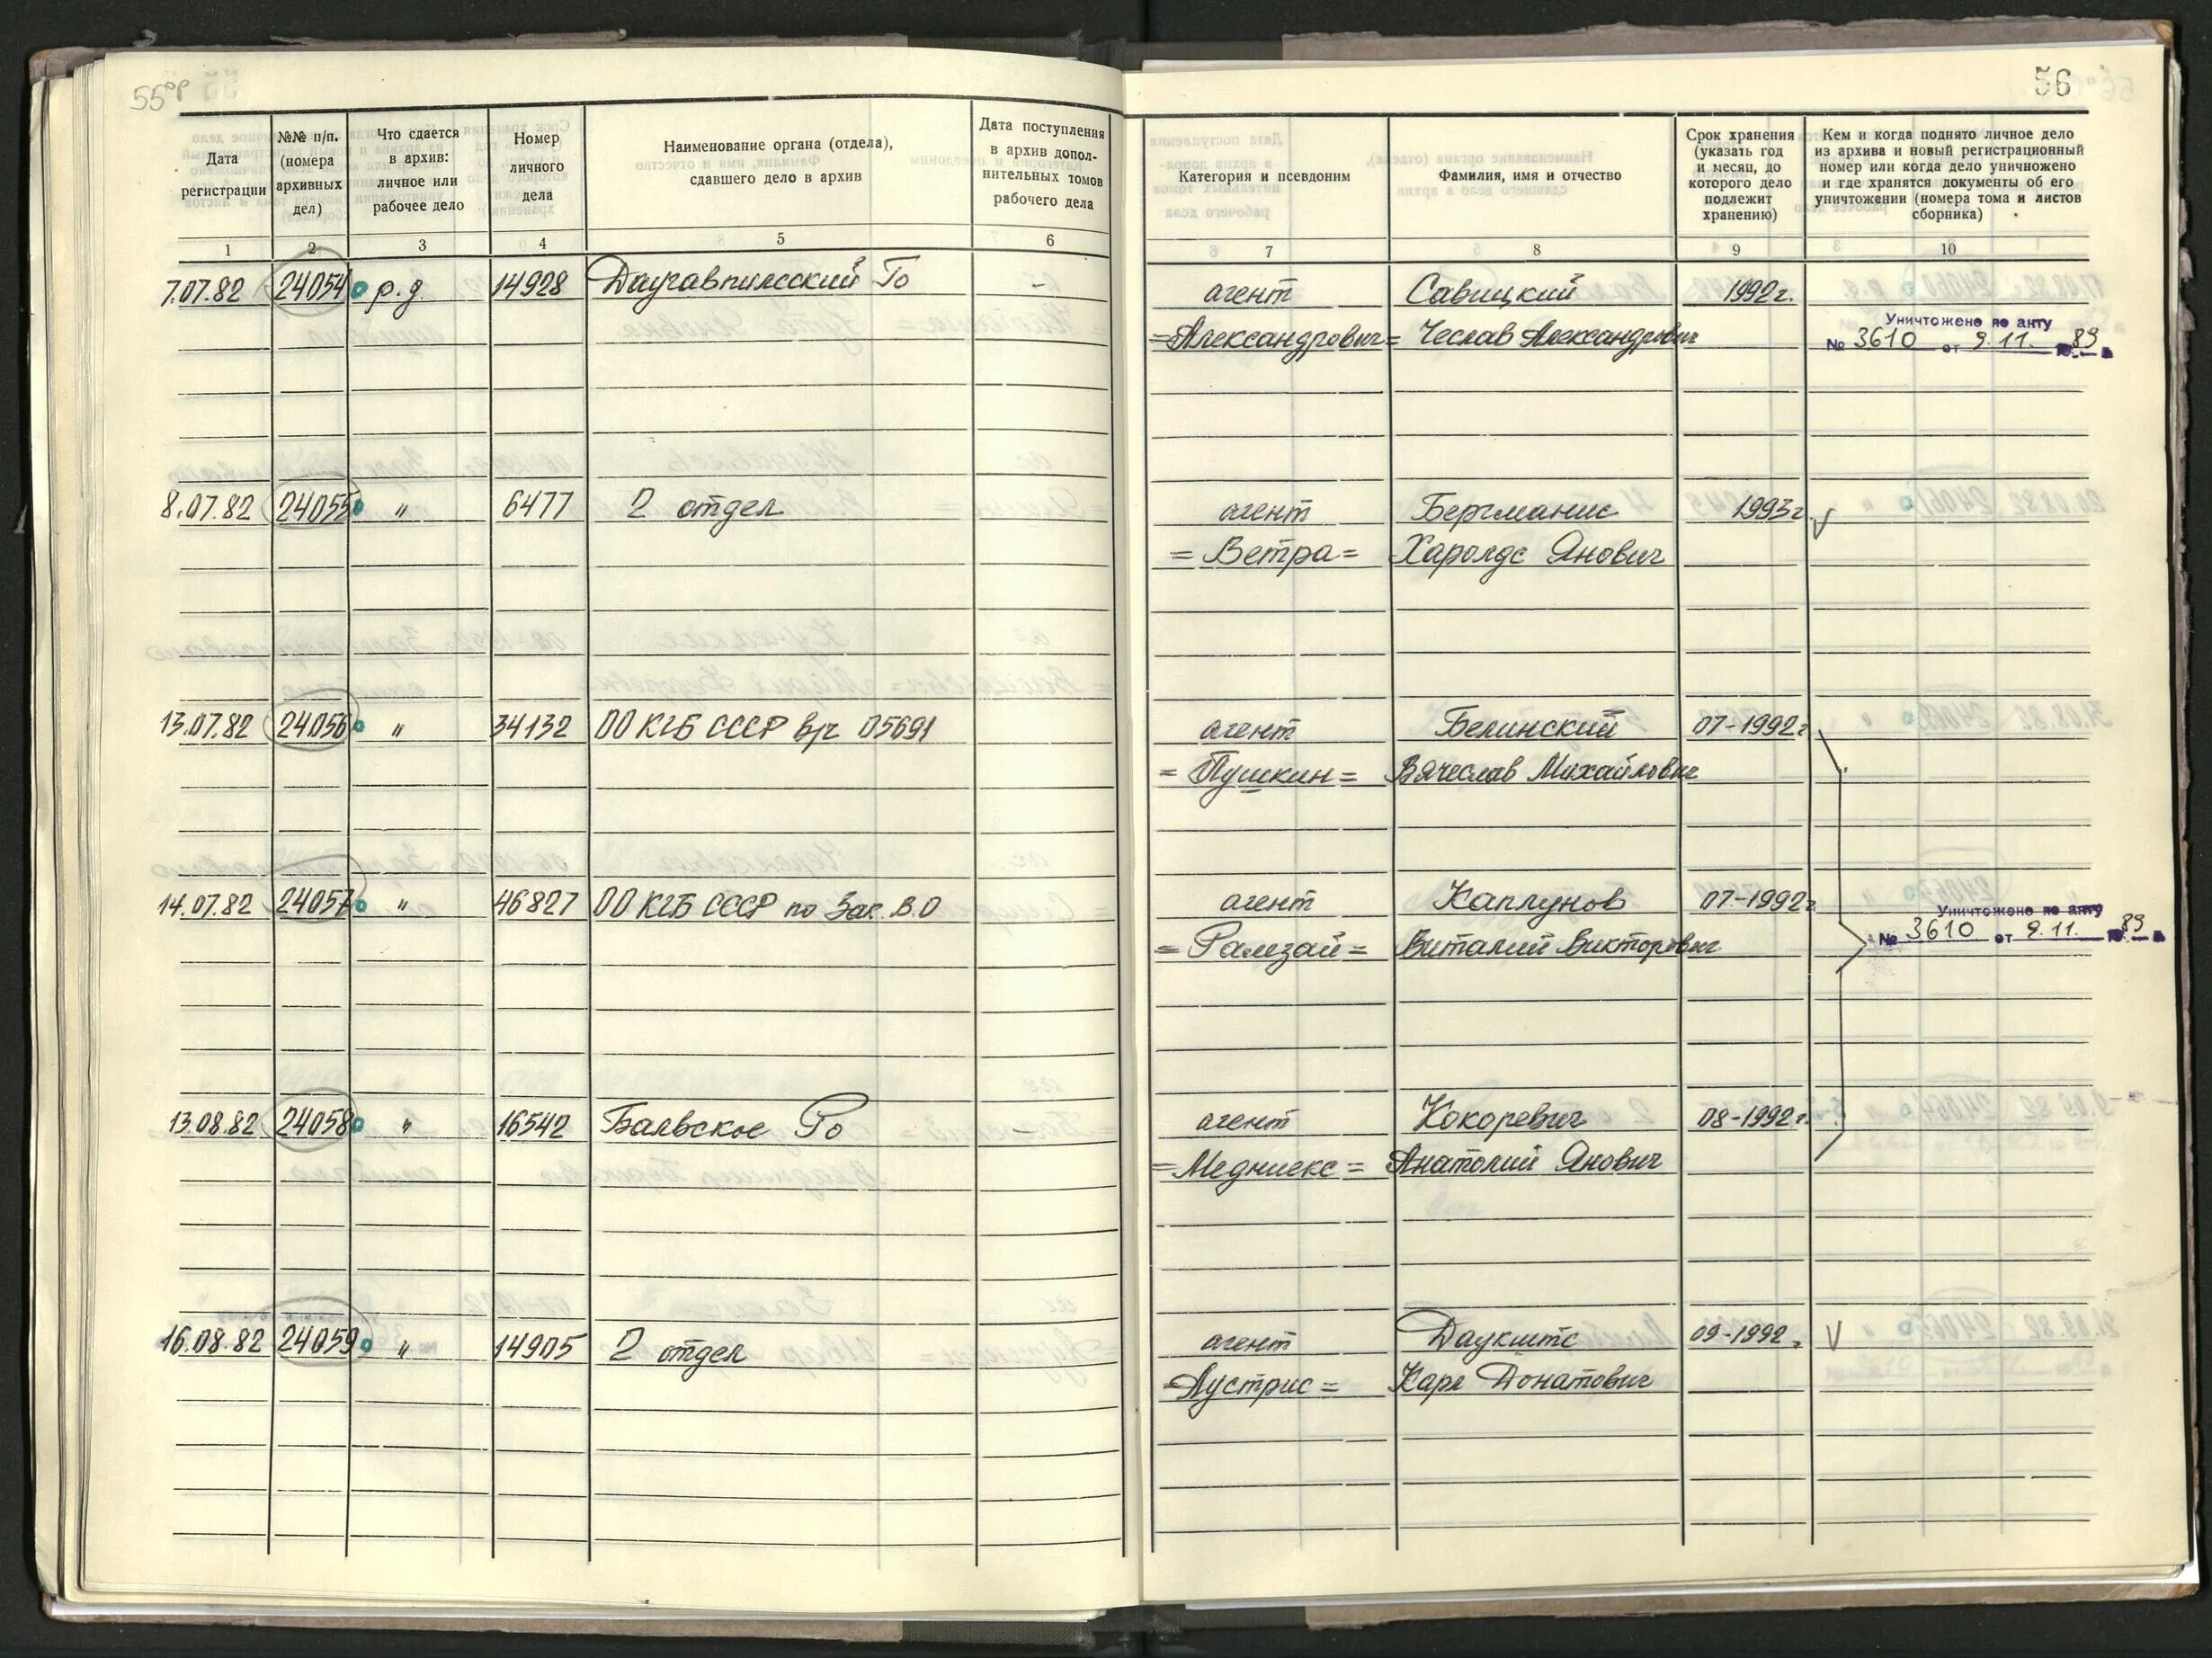 55об
56
Дата
регистрации
№№ п/п.
(номера
архивных
дел)
Что сдается
в архив:
личное или
рабочее дело
Номер
личного
дела
Наименование органа (отдела),
сдавшего дело в архив
Дата поступления
в архив допол-
нительных томов
рабочего дела
Категория и псевдоним
Фамилия, имя и отчество
Срок хранения
(указать год
и месяц, до
которого дело
подлежит
хранению)
Кем и когда поднято личное дело
из архива и новый регистрационный
номер или когда дело уничтожено
и где хранятся документы об его
уничтожении (номера тома и листов
сборника)
1 2 3 4 5 6 7 8 9 10
7.07.82 24054 р.д. 14928 Даугавпилсский Го – агент Савицкий 1992г.
=Александрович= Чеслав Александрович
Уничтожено по акту
№ 3610 от 9.11. 1983 г.
8.07.82 24055 " 6477 2 отдел агент Бергманис 1993г. V
=Ветра= Харолдс Янович
13.07.82 24056 " 34132 ОО КГБ СССР в/ч 05691 агент Белинский 07-1992г
=Пушкин= Вячеслав Михайлович
14.07.82 24057 " 46827 ОО КГБ СССР по Зак. В.О агент Каплунов 07-1992г
=Рамзай= Виталий Викторович
Уничтожено по акту
№ 3610 от 9.11. 1983 г.
13.08.82 24058 " 16542 Балвское Ро – агент Кокоревич 08-1992г.
=Медниекс= Анатолий Янович
16.08.82 24059 " 14905 2 отдел агент Даукштс 09-1992г. V
=Аустрис= Карл Донатович